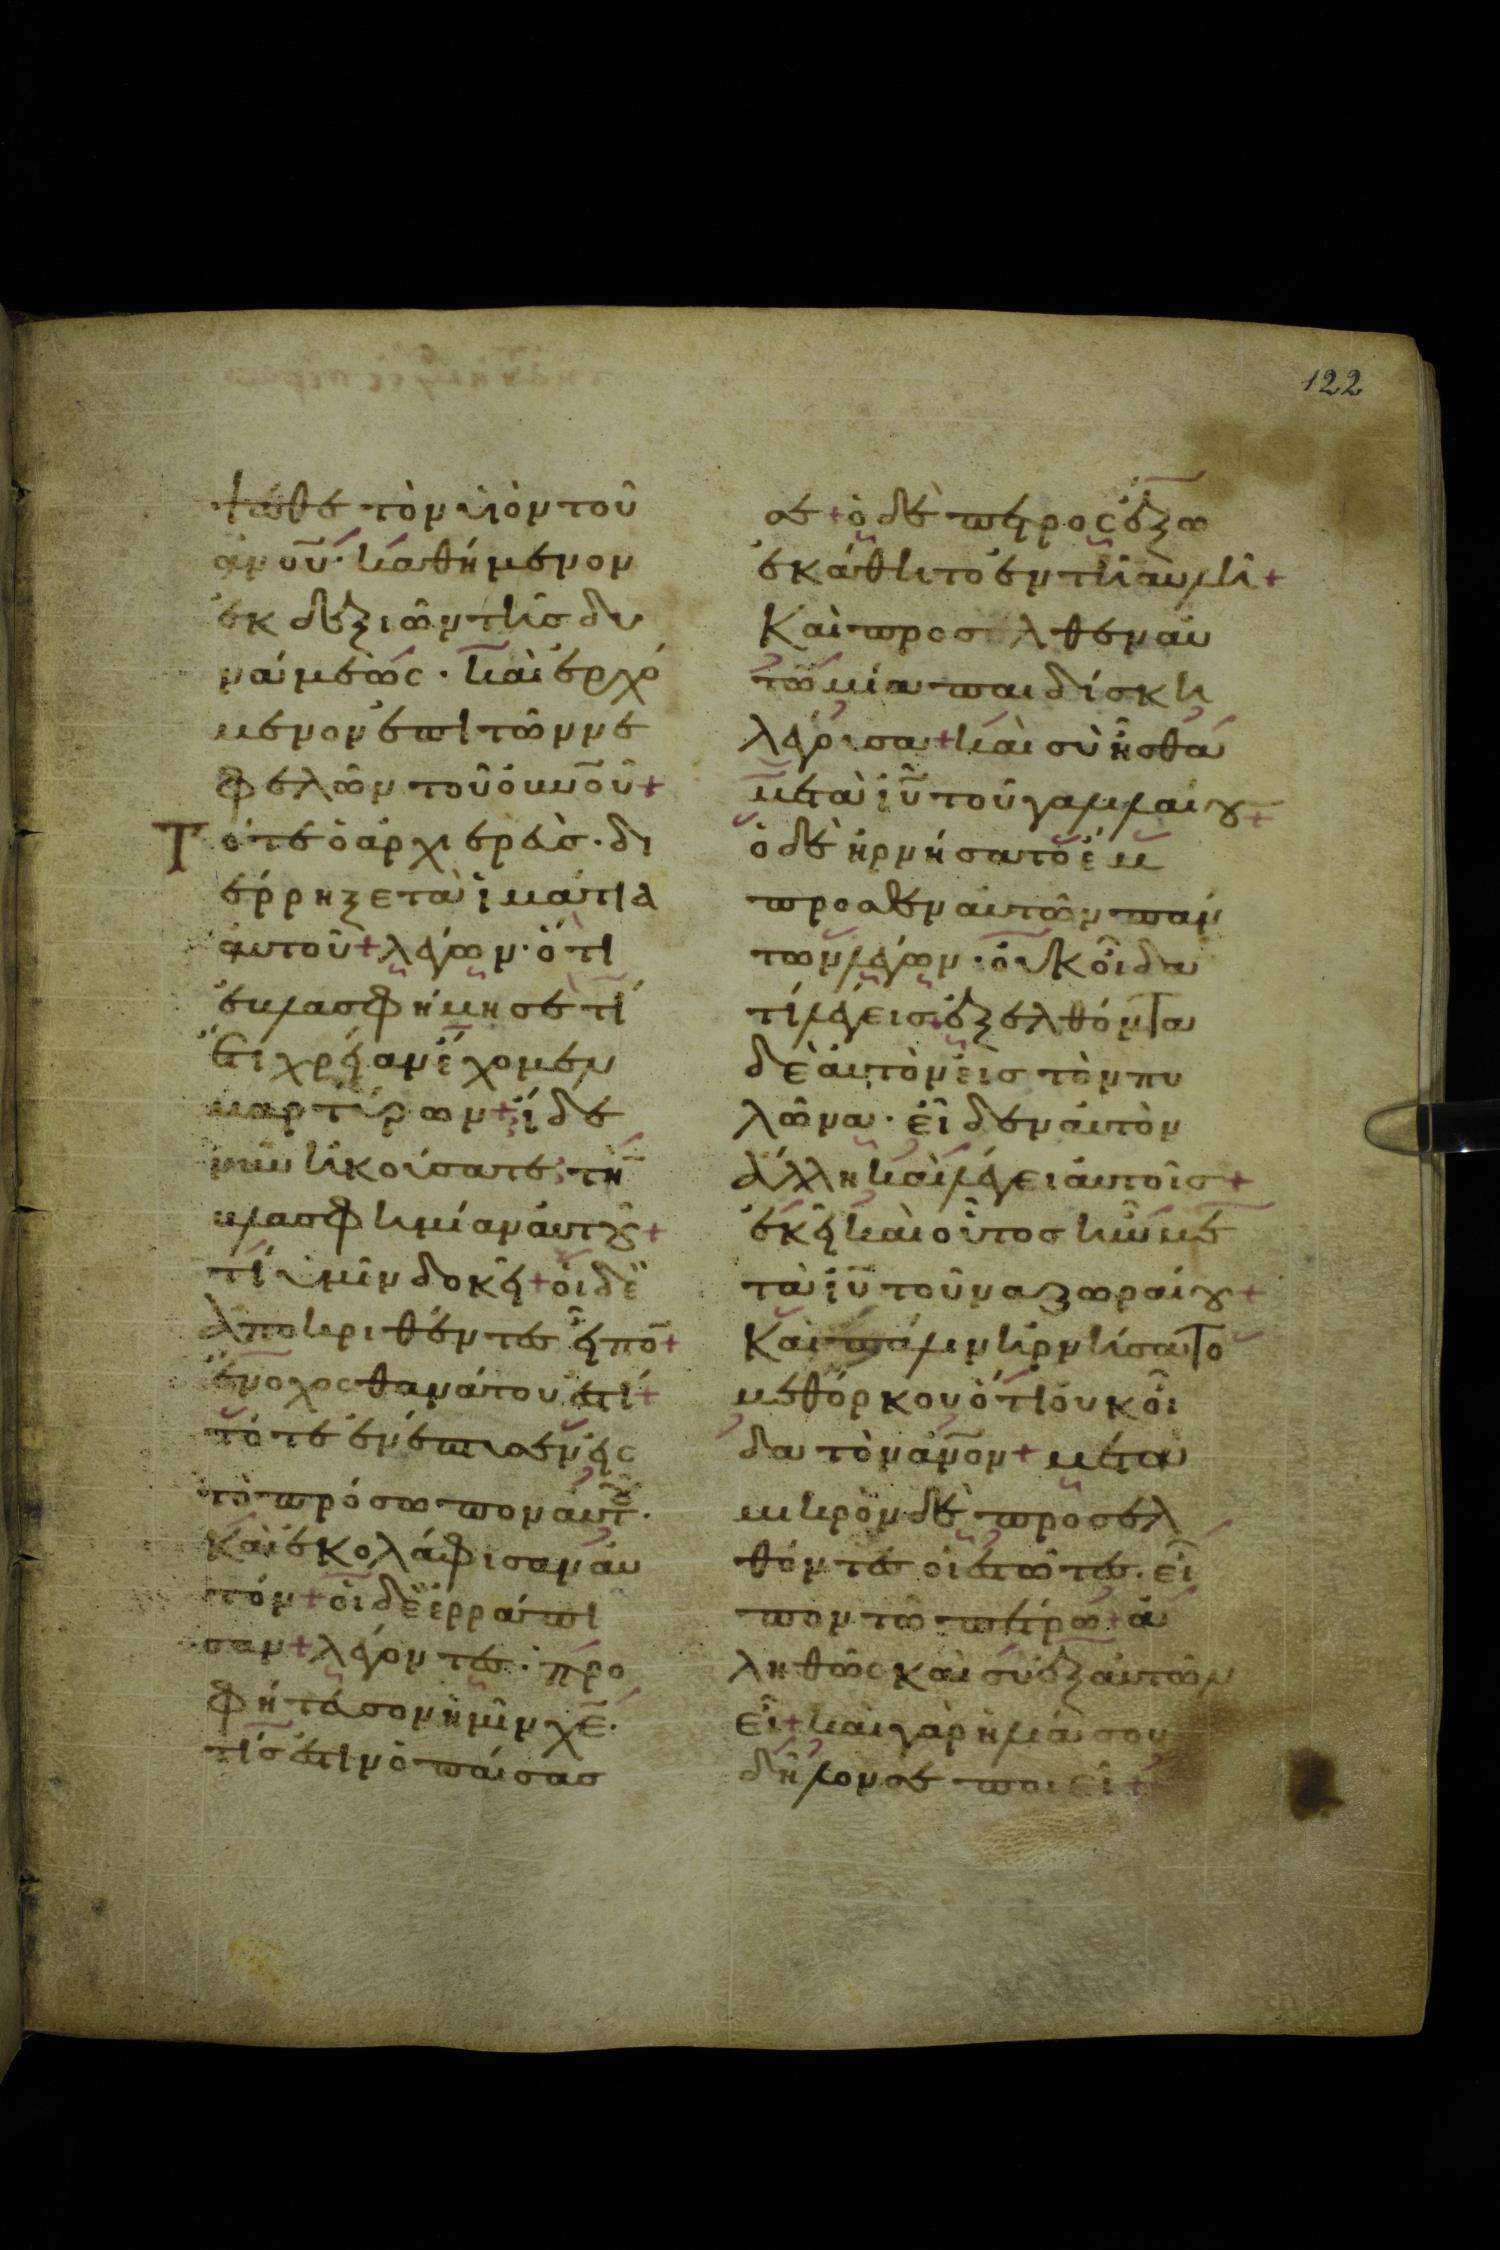 122
ψεσθε τὸν υἱὸν τοῦ
ἀνου· καθήμενον
ἐκ δεξιῶν τῆς δυ
νάμεως· καὶ ἐρχό
μενον ἐπι τῶν νε
φελῶν τοῦ οὐνοῦ+
Τότε ὁ ἀρχιερεὺσ· δι
έρρηξε τὰ ἱμάτια
ἀυτοῦ+ λέγων· ὅτι
ἐβλασφήμησε τί
ἔτι χρείαν ἔχομεν
μαρτύρων+ ἴδε
νῦν ἠκούσατε τὴν
βλασφημίαν ἀυτοῦ+
τί ὑμῖν δοκεῖ+ ὁι δὲ
ἀποκριθέντες εἶπον+
ἔνοχος θανάτου ἐστί+
τότε ἐνέπτυσαν εἰς
τὸ πρόσωπον ἀυτοῦ·
καὶ ἐκολάφισαν ἀυ
τόν+ ὁι δὲ ἐρράπι
σαν+ λέγοντες· προ
φήτευσον ἡμῖν χε·
τίσ ἐστιν ὁ παίσασ
σε+ ὁ δὲ πέτρος ἔξω
ἐκάθητο ἐν τῆ ἀυλῆ+
Καὶ προσῆλθεν ἀυ
τῶ μία παιδίσκη
λέγουσα+ καὶ σὺ ἦσθα
μετὰ ιυ τοῦ γαλιλαίου+
ὁ δὲ ἠρνήσατο ἔμ
προσθεν ἀυτῶν πάν
των λέγων· ὀυκ οἶδα
τί λέγεισ+ ἐξελθόντα
δὲ ἀυτὸν εἰσ τὸν πυ
λῶνα· εἶδεν ἀυτὸν
ἄλλη καὶ λέγει ἀυτοῖσ+
ἐκεῖ καὶ οὗτοσ ἦν με
τὰ ιυ τοῦ ναζωραίου+
Καὶ πάλιν ἠρνήσατο
μεθόρκου ὅτι ὀυκ οἶ
δα τὸν ἀνον+ μετὰ
μικρὸν δὲ προσελ
θόντες οἱ ἑστῶτες· εἶ
πον τῶ πέτρω+ ἀ
ληθῶς καὶ σὺ ἐξ ἀυτῶν
εἶ+ καὶ γὰρ ἡ λαλιά σου
δῆλον σε ποιεῖ+